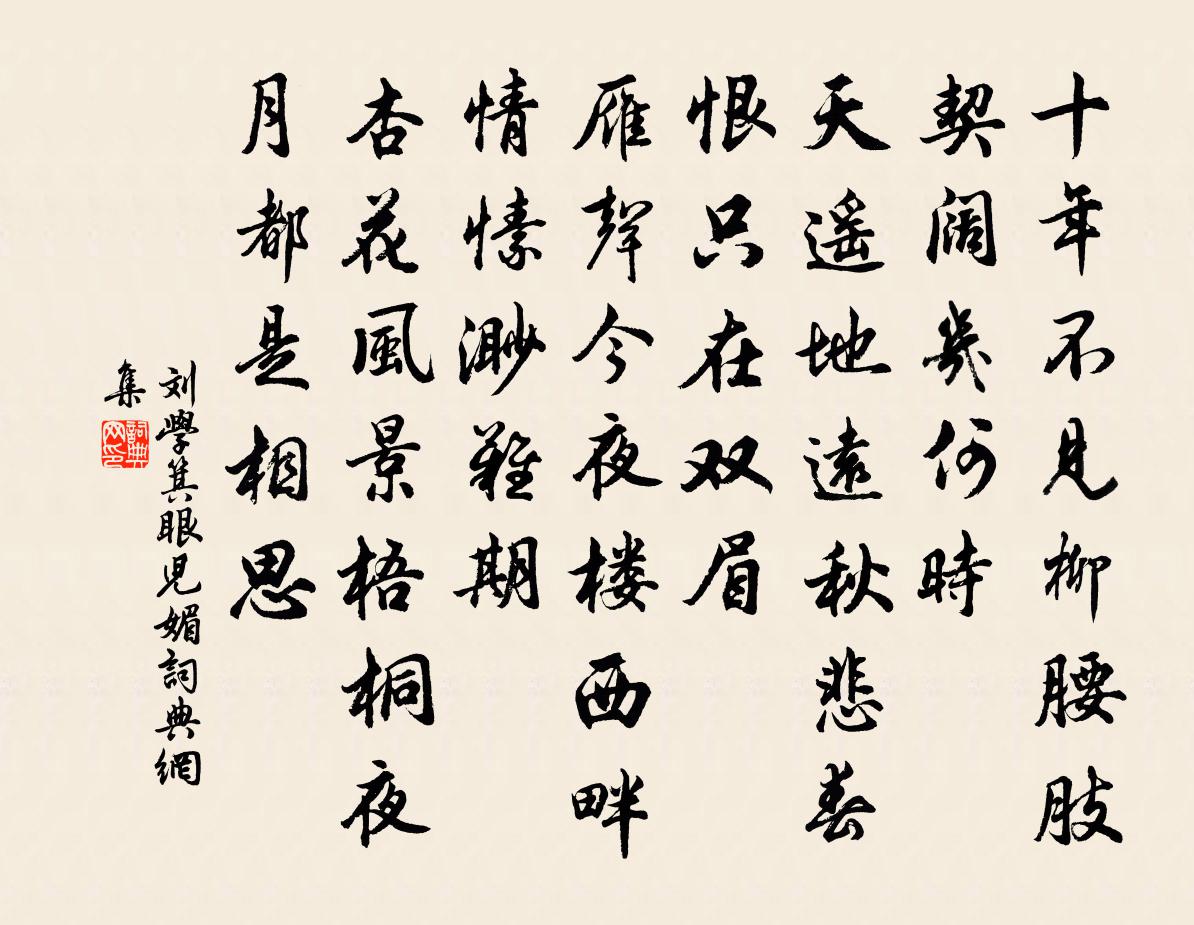 十年不見柳腰肢
契闊幾何時
天遥地遠秋悲春
恨只在双眉
雁聲今夜楼西畔
情愫渺難期
杏花風景梧桐夜
月都是相思
刘學箕眼児媚詞典網
集
詞典网印